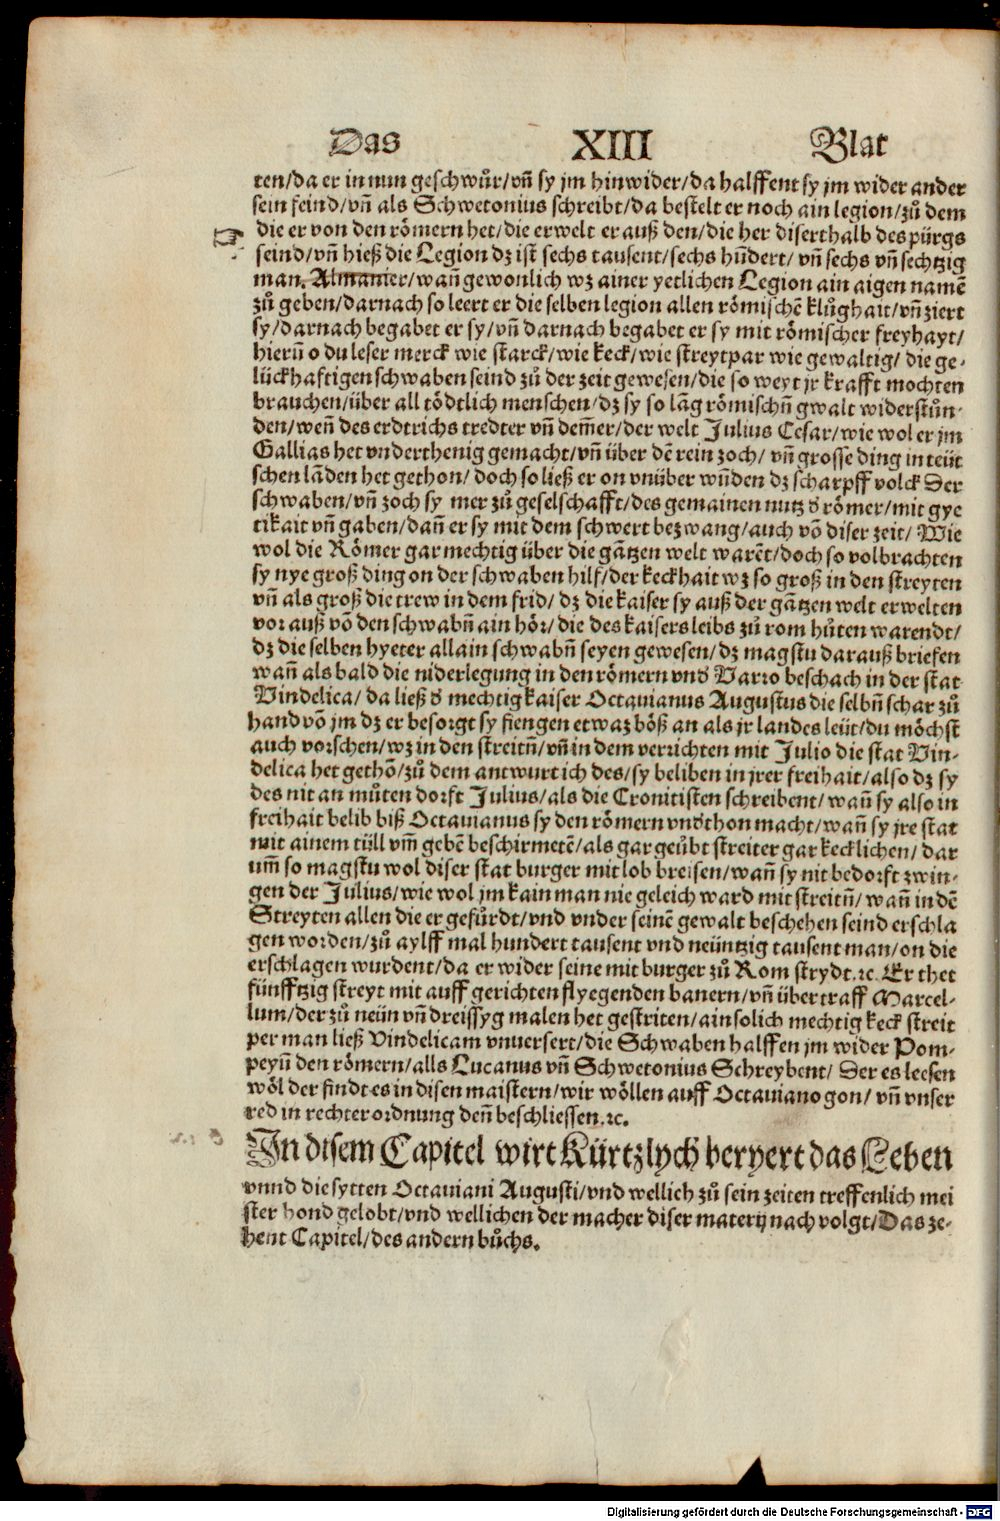 Das XIII Blat
ten/da er in nun geschwůr/vñ sy jm hinwider/da halffent sy jm wider ander
sein feind/vñ als Schwetonius schreibt/da bestelt er noch ain legion/zů dem
die er von den römern het/die erwelt er auß den/die her diserthalb des pürgs
seind/vñ hieß die Legion dz ist sechs tausent/sechs hũdert/ vñ sechs vñ sechtzig
man. Almanier/wañ gewonlich wz ainer yetlichen Legion ain aigen namẽ
zů geben/darnach so leert er die selben legion allen römischẽ klůghait/vñ ziert
sy/darnach begabet er sy/vñ darnach begabet er sy mit römischer freyhayt/
hierũ o du leser merck wie starck/wie keck/wie streytpar wie gewaltig/ die ge-
lückhaftigen schwaben seind zů der zeit gewesen/die so weyt jr krafft mochten
brauchen/über all tödtlich menschen/dz sy so lãg römischñ gwalt widerstůn-
den/weñ des erdtrichs tredter vñ dem̃er/der welt Julius Cesar/wie wol er jm
Gallias het vnderthenig gemacht/vñ über dẽ rein zoch/ vñ grosse ding in teüt
schen lãden het gethon/ doch so ließ er on vnüber wũden dz scharpff volck Der
schwaben/vñ zoch sy mer zů geselschafft/des gemainen nutz ď römer/mit gye
tikait vñ gaben/dañ er sy mit dem schwert bezwang/auch võ diser zeit/ Wie
wol die Römer gar mechtig über die gãtzen welt warẽt/doch so volbrachten
sy nye groß ding on der schwaben hilf/der keckhait wz so groß in den streyten
vñ als groß die trew in dem frid/ dz die kaiser sy auß der gãtzen welt erwelten
vor auß võ den schwabñ ain hör/die des kaisers leibs zů rom hůten warendt/
dz die selben hyeter allain schwabñ seyen gewesen/dz magstu darauß briefen
wañ als bald die niderlegung in den römern vnď Varro beschach in der stat
Vindelica/da ließ ď mechtig kaiser Octauianus Augustus die selbñ schar zů
hand võ jm dz er besorgt sy fiengen etwaz böß an als jr landes leüt/du möchst
auch vorschen/wz in den streitñ/vñ in dem verrichten mit Julio die stat Vin-
delica het gethõ/zů dem antwurt ich des/sy beliben in jrer freihait/also dz sy
des nit an můten dorft Julius/als die Cronitisten schreibent/wañ sy also in
freihait belib biß Octauianus sy den römern vnďthon macht/wañ sy jre stat
mit ainem tüll vm̃ gebẽ beschirmetẽ/als gar geübt streiter gar kecklichen/ dar
um̃ so magstu wol diser stat burger mit lob breisen/wañ sy nit bedorft zwin-
gen der Julius/wie wol jm kain man nie geleich ward mit streitñ/wañ in dẽ
Streyten allen die er gefůrdt/vnd vnder seinẽ gewalt beschehen seind erschla
gen worden/zů aylff mal hundert tausent vnd neüntzig tausent man/on die
erschlagen wurdent/da er wider seine mit burger zů Rom strydt.ꝛc. Er thet
fünfftzig streyt mit auff gerichten flyegenden banern/vñ über traff Marcel-
lum/der zů neün vñ dreissyg malen het gestriten/ain solich mechtig keck streit
per man ließ Vindelicam vnuersert/die Schwaben halffen jm wider Pom-
peyũ den römern/alls Lucanus vñ Schwetonius Schreybent/ Der es leesen
wöl der findt es in disen maistern/wir wöllen auff Octauiano gon/ vñ vnser
red in rechter ordnung deñ beschliessen.ꝛc.
In disem Capitel wirt Kürtzlych beryert das Leben
vnnd die sytten Octauiani Augusti/vnd wellich zů sein zeiten treffenlich mei
ster hond gelobt/vnd wellichen der macher diser matery nach volgt/Das ze-
hent Capitel/des andern bůchs.
Digitalisierung gefördert durch die Deutsche Forschungsgemeinschaft - DFG